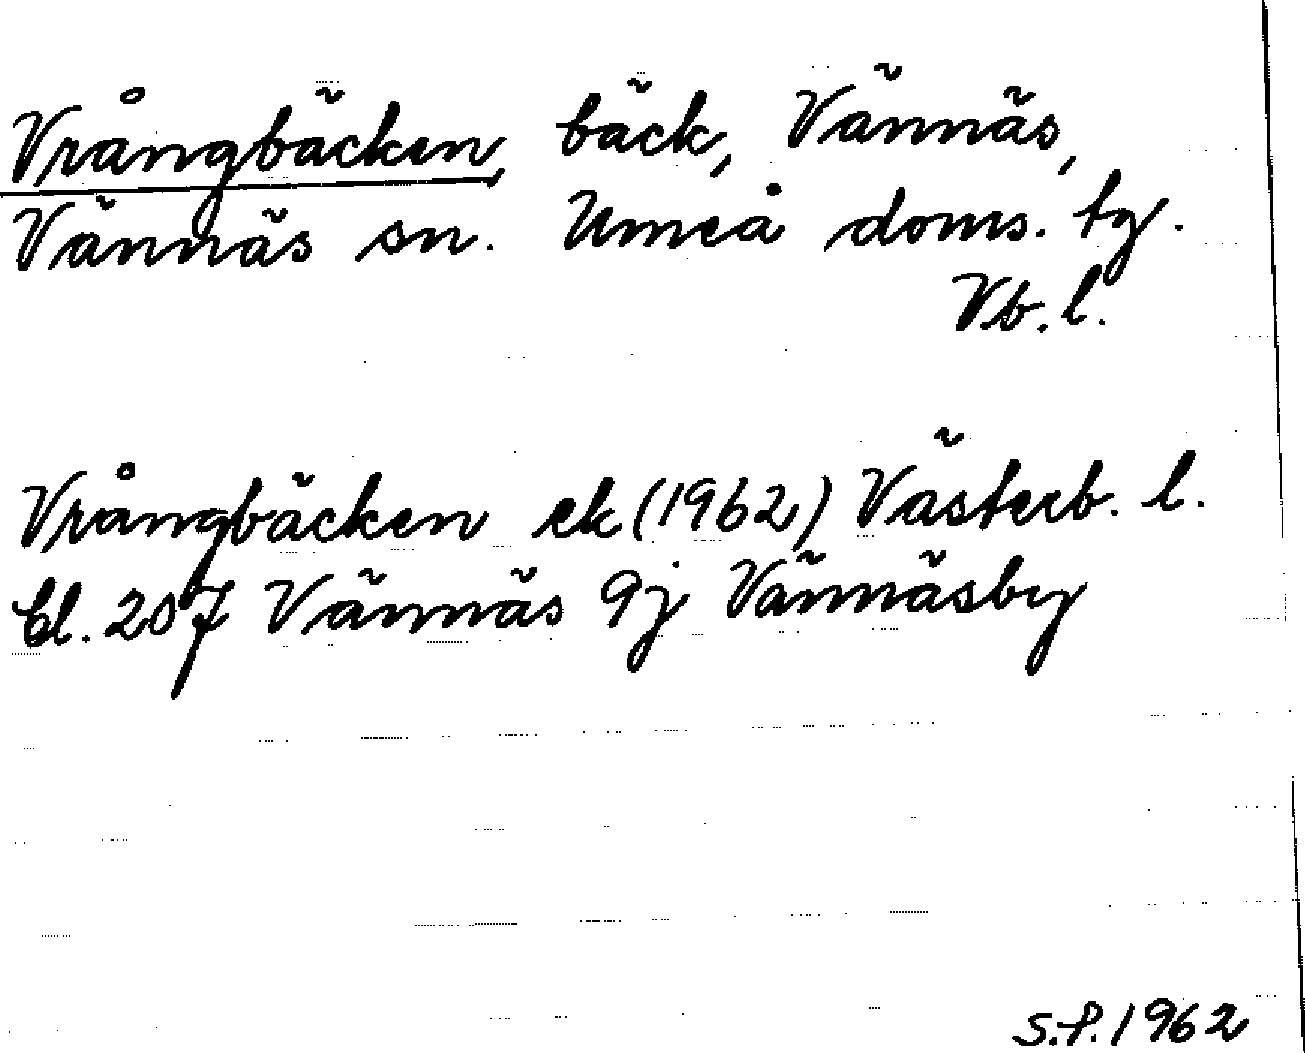 Vrångbäcken, bäck, Vännäs,
Vännäs sn. Umeå doms. tg.
Vb. l.
Vrångbäcken ek (1962) Västerb. l.
bl. 207 Vännäs 9j Vännäsby
S.P. 1962